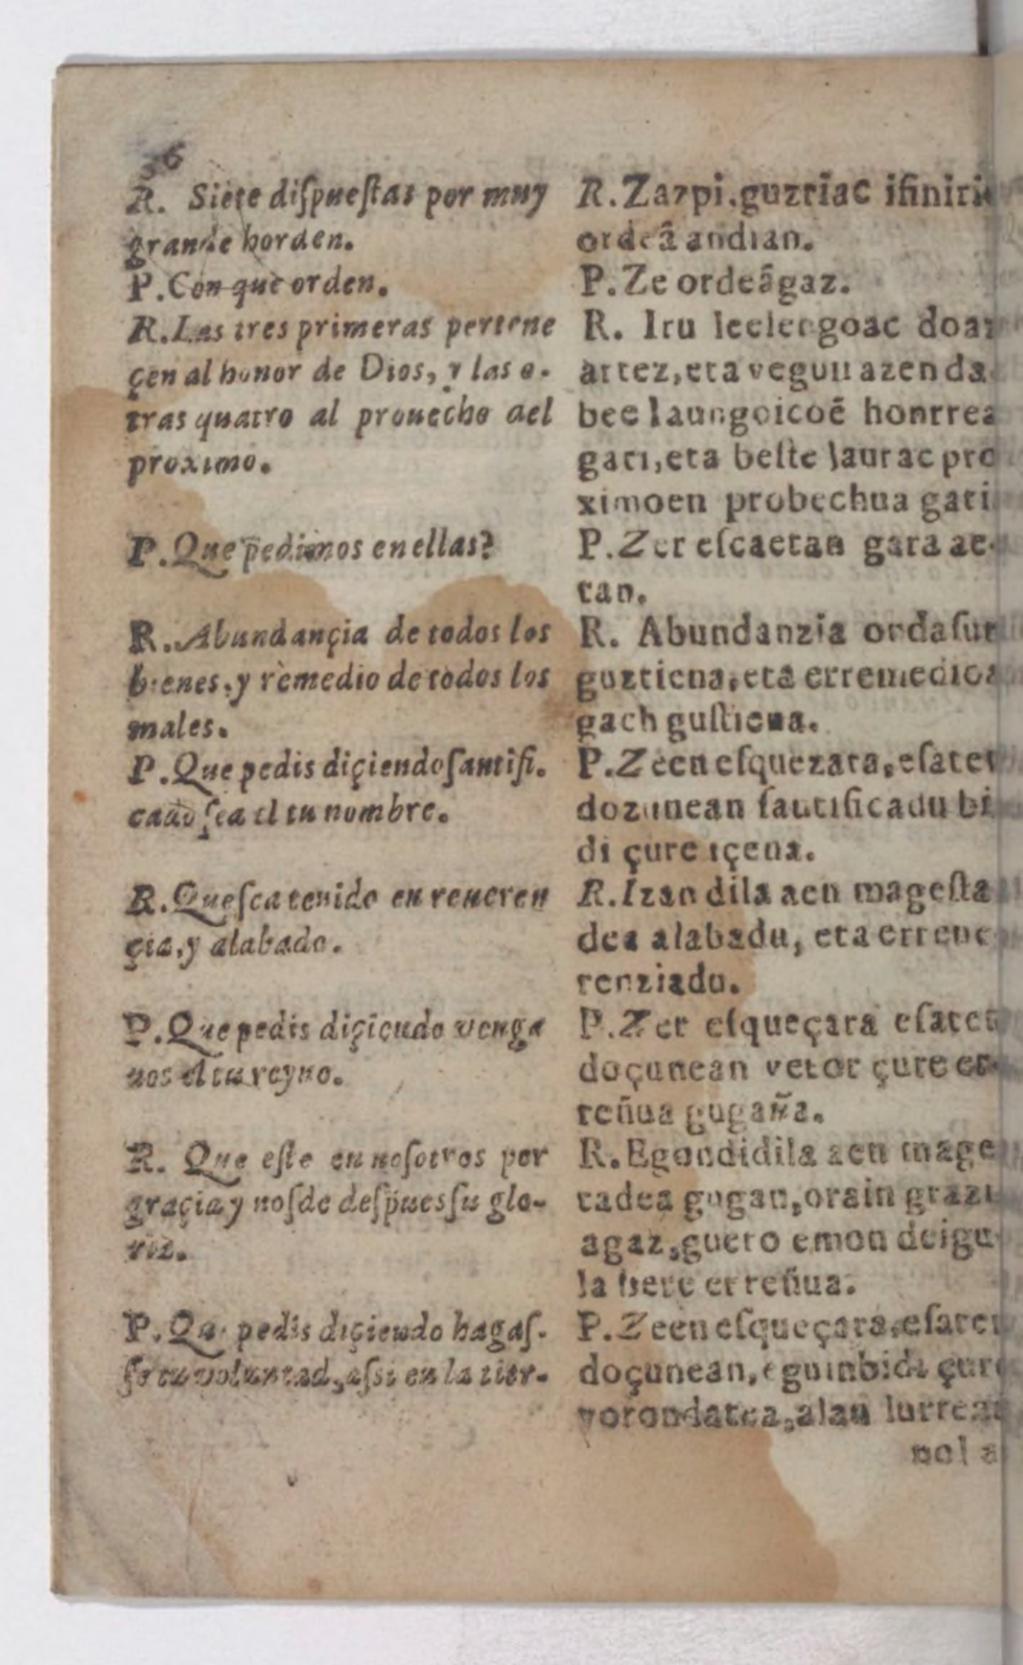 36
R. Siete dispuestas por muy
grande horden.
P. Con que orden.
R. Las tres primeras pertene
çen al honor de Dios, y las o-
tras quatro al prouecho del
proximo.
P. Que pedimos en ellas?
R. Abundançia de todos los
bienes, y remedio de todos los
males.
P. Que pedis diçiendo ſantifi-
cado ſea el tu nombre.
R. Que ſea tenido en reueren
çia, y alabado.
P. Que pedis diçiendo venga
nos el tu reyno.
R. Que eſte en noſotros por
graçia y noſ de deſpues ſu glo-
ria.
P. Que pedis diçiendo hagaſ-
ſe tu voluntad, aſsi en la tier-
R. Zazpi, guztiac iſiniric
ordeā andian.
P. Ze ordeāgaz.
R. Iru leelengoac doaz
artez, eta veguiiazenda
bee Iaungoicoē honrrea
gati, eta beſte laurac pro
ximoen probechua gati
P. Zer eſcaetan gara ae-
tan.
R. Abundanzia ondaſun
guztiena, eta erremedioa
gach guſtiena.
P. Zeen eſquezara, eſaten
dozunean ſantificadu bi
di çure içena.
R. Izan dila aen mageſta
dea alabadu, eta erreue
renziadu.
P. Zer eſqueçara eſaten
doçunean vetor çure er-
reñua gugaña.
R. Egondidila aen mage
tadea gugan, orain grazi
agaz, guero emon deigu
la bere erreñua.
P. Zeen eſqueçara, eſaten
doçunean, eguinbidi çure
vorondatea, alan lurrean
nol a